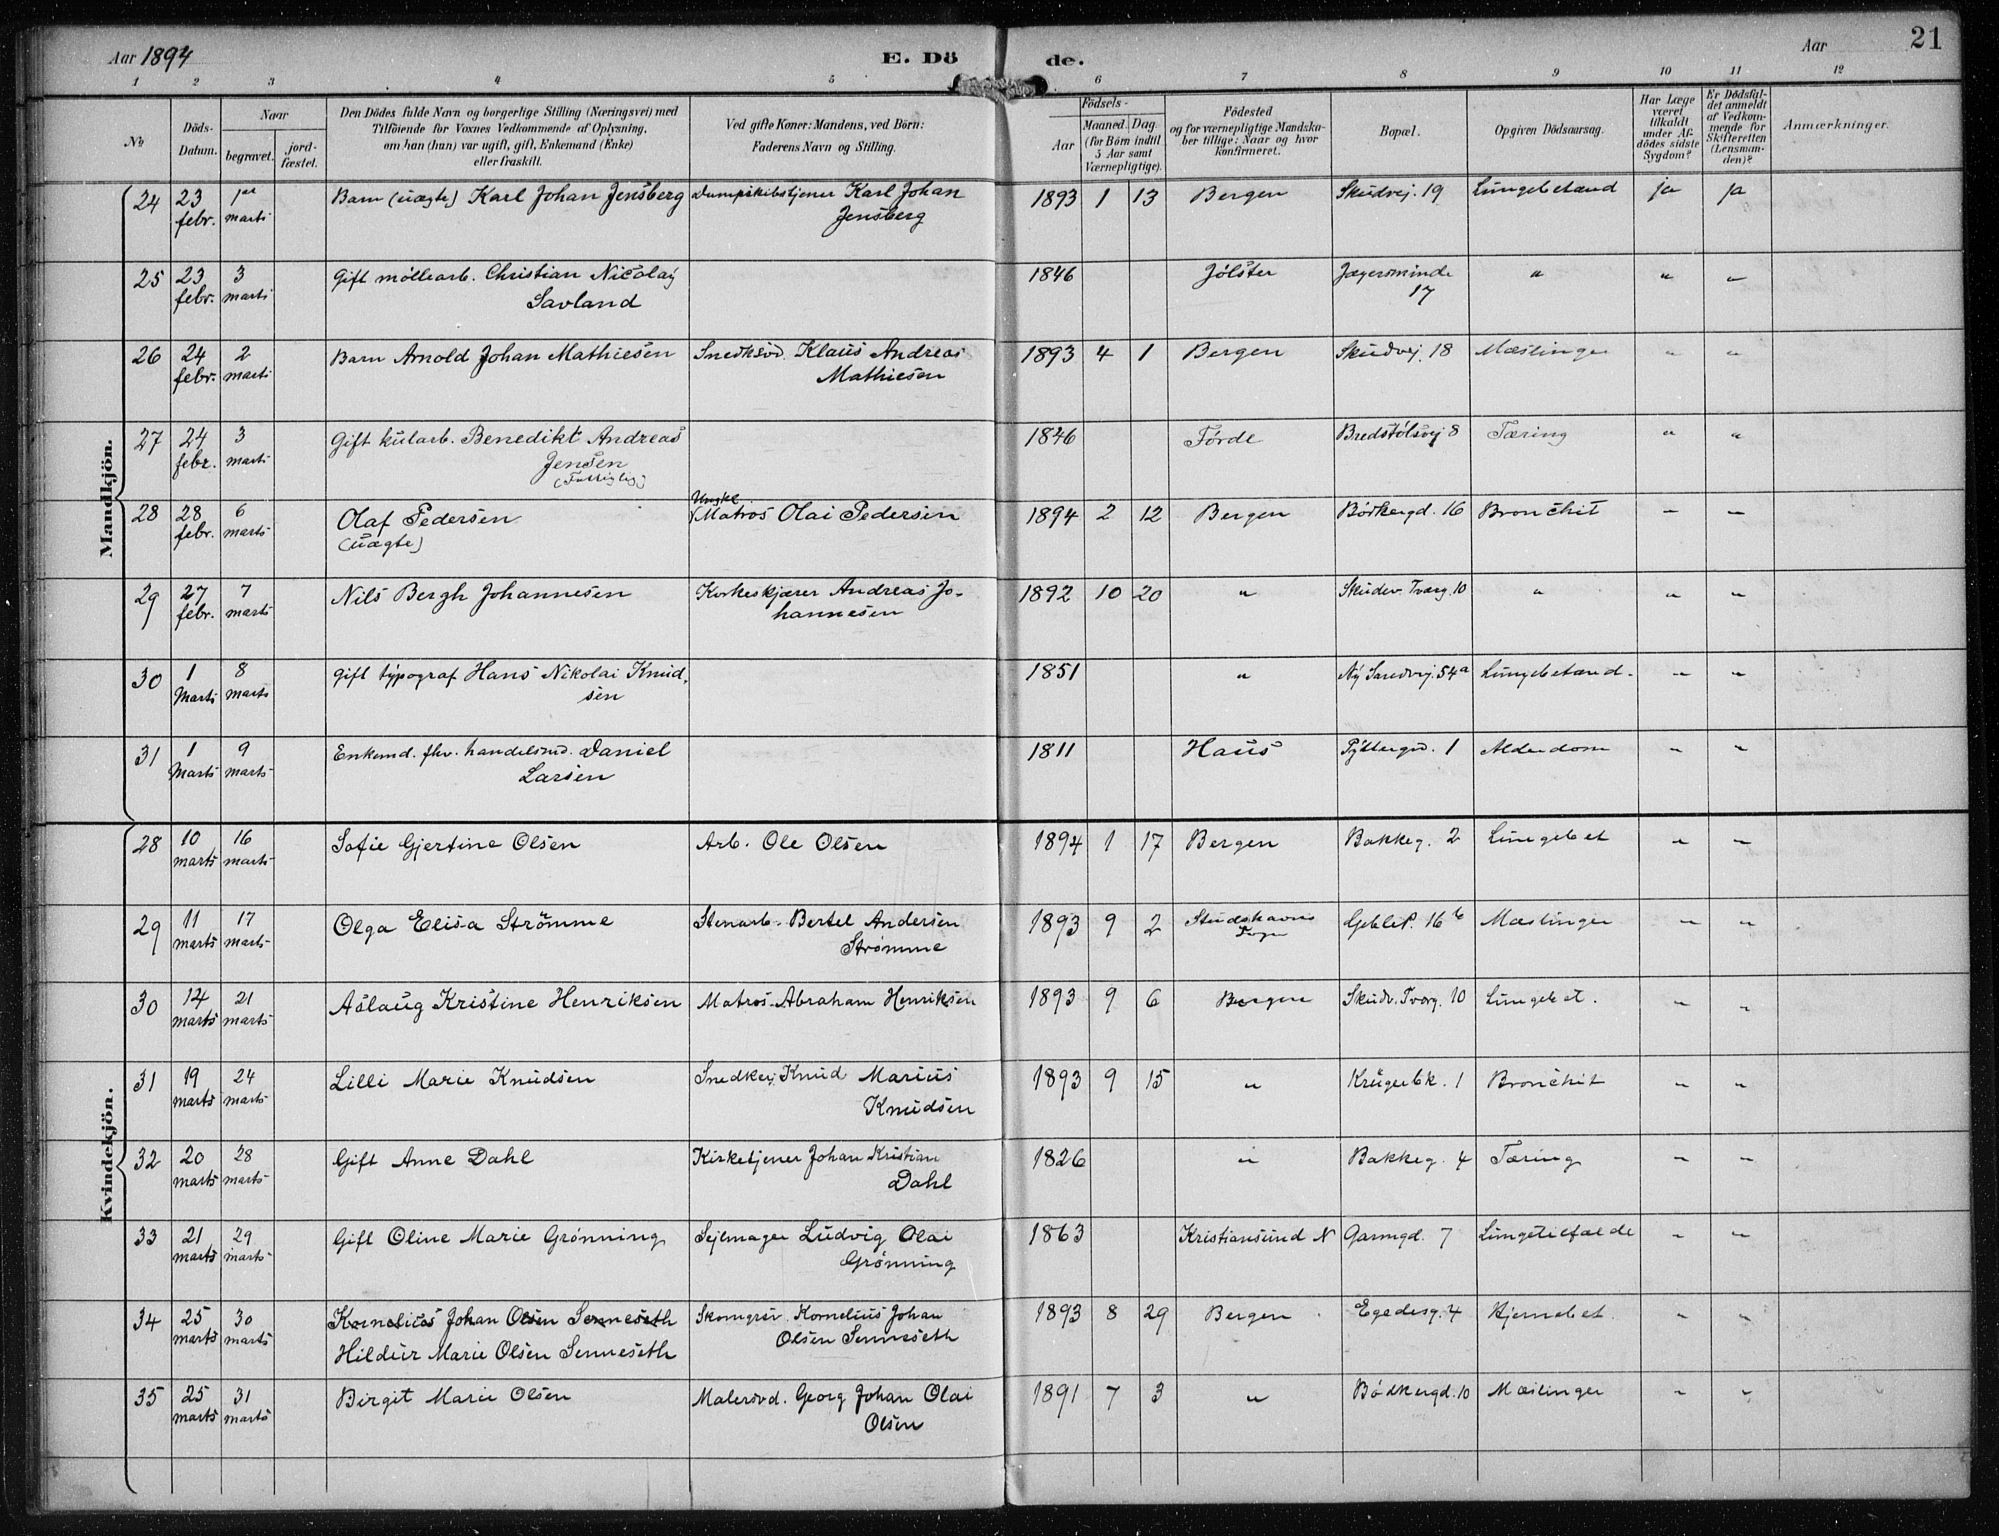 Aar 1894
E. Dö
de.
Aar
21
1 2 3 4 5 6 7 8 9 10 11 12
No
Döds-
Datum.
Naar
begravet.
jord-
fæstet.
Den Dödes fulde Navn og borgerlige Stilling (Næringsvei) med
Tilföiende for Voxnes Vedkommende af Oplysning,
om han (hun) var ugift, gift, Enkemand (Enke)
eller fraskilt.
Ved gifte Koner: Mandens, ved Börn:
Faderens Navn og Stilling.
Födsels-
Aar
Maaned.
Dag.
(for Börn indtil
5 Aar samt
Værnepligtige).
Födested
og for værnepligtige Mandska-
ber tillige: Naar og hvor
konfirmeret.
Bopæl.
Opgiven Dödsaarsag.
Har Læge
været
tilkaldt
under Af-
dödes sidste
Sygdom?
Er Dödsfal-
det anmeldt
af Vedkom-
mende for
Skifteretten
(Lensman-
den)?
Anmærkninger.
Mandkjön.
24 23 febr. 1ste marts Barn (uægte) Karl Johan Jensberg Dampskibstjener Karl Johan
Jensberg 1893 1 13 Bergen Skudvej. 19 Lungebetænd ja ja
25 23 febr. 3 marts Gift møllearb. Christian Nicolay
Savland 1846 Jølster Jægersminde
17 " " "
26 24 febr. 2 marts Barn Arnold Johan Mathiesen Snedksvd. Klaus Andreas
Mathiesen 1893 4 1 Bergen Skudvej. 18 Mæslinger " "
27 24 febr. 3 marts Gift kularb. Benedikt Andreas
Jensen
(Fattiglig) 1846 Førde Bredstølsvej 8 Tæring " "
28 28 febr. 6 marts Olaf Pedersen
(uægte) Ungk.
Matros Olai Pedersen 1894 2 12 Bergen Bødkergd. 16 Bronchit " "
29 27 febr. 7 marts Nils Bergh Johannesen Korkeskjærer Andreas Jo-
hannesen 1892 10 20 " Skudev. Tværg. 10 " " "
30 1 Marts 8 marts Gift typograf Hans Nikolai Knud-
sen 1851 " Ny Sandvej. 54a Lungebetænd. " "
31 1 Marts 9 marts Enkemd. fhv. handelsmd. Daniel
Larsen 1811 Haus Pyttergd. 1 Alderdom " "
Kvindekjön.
28 10 marts 16 marts Sofie Gjertine Olsen Arb. Ole Olsen 1894 1 17 Bergen Bakkeg. 2 Lungebet " "
29 11 marts 17 marts Olga Elisa Strömme Stenarb. Bertel Andersen
Strømme 1893 9 2 Studshavns Geblep. 16b Mæslinger " "
30 14 marts 21 marts Aslaug Kristine Henriksen Matros Abraham Henriksen 1893 9 6 Bergen Skudv. Tværg. 10 Lungebet. " "
31 19 marts 24 marts Lilli Marie Knudsen Snedker Knud Marius
Knudsen 1893 9 15 " Krügerbk. 1 Bronchit " "
32 20 marts 28 marts Gift Anne Dahl Kirketjener Johan Kristian
Dahl 1826 " Bakkeg. 4 Tæring " "
33 21 marts 29 marts Gift Oline Marie Grønning Sejlmager Ludvig Olai
Grønning 1863 Kristiansund N Garmgd. 7 Lungetilfælde " "
34 25 marts 30 marts Kornelius Johan Olsen Senneseth
Hildur Marie Olsen Senneseth Skomgrsv. Kornelius Johan
Olsen Senneseth 1893 8 29 Bergen Egedesg. 4 Hjernebet. " "
35 25 marts 31 marts Birgit Marie Olsen Malersvd. Georg Johan Olai
Olsen 1891 7 3 " Bødkergd. 10 Mæslinger " "